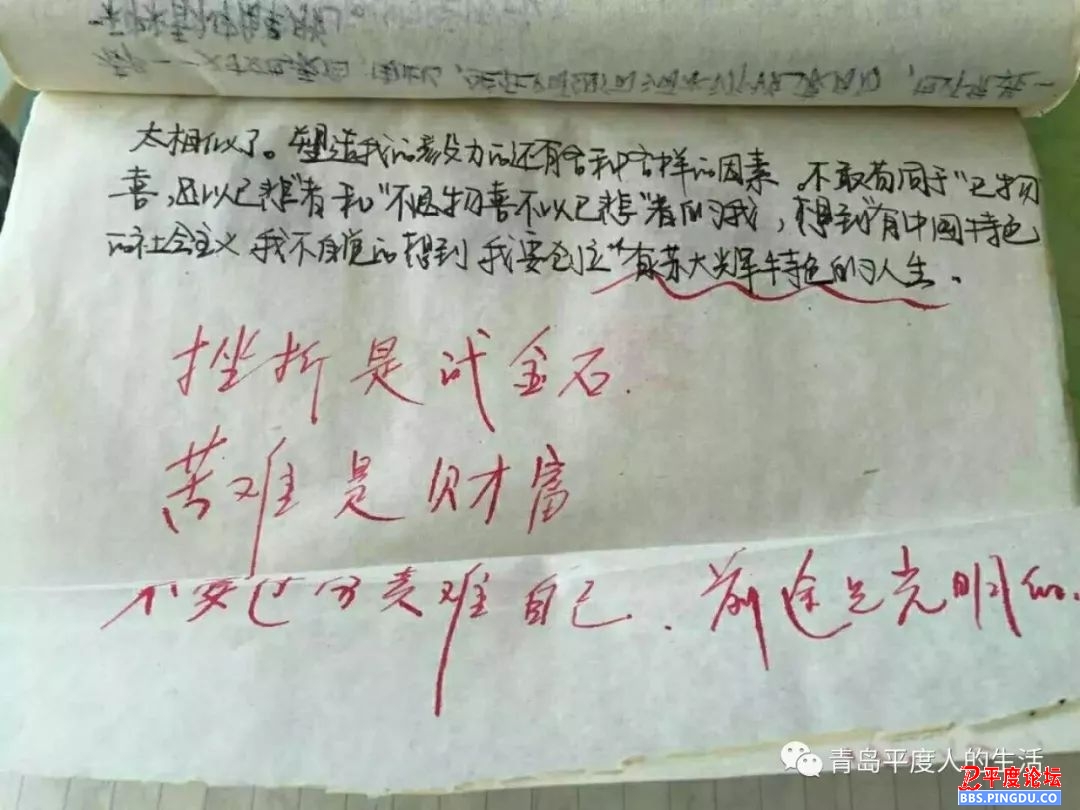 太相似了。塑造我的毅力的还有各种各样的因素。不敢苟同于“已物
喜，还以已悲”者和“不以物喜不以已悲”者的我，想到“有中国特色
的社会主义 我不自觉的想到 我要创立“有苏大辉特色的人生。
挫折是试金石.
苦难是财富
不要过分责难自己. 前途是光明的.
青岛平度人的生活
平度论坛
BBS.PINGDU.CO